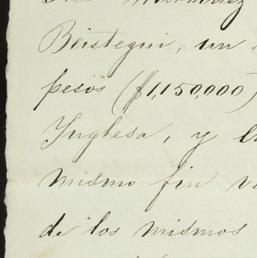 Beistegui, un
pesos ($1,150,000)
Inglesa, y
mismo fin
de los mismos